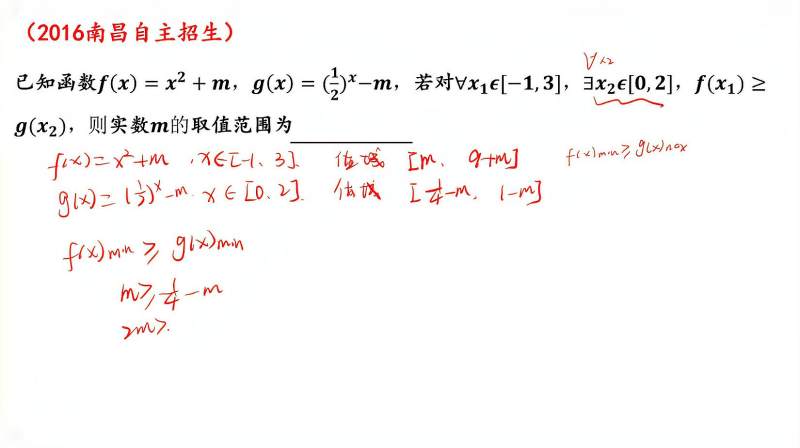 （2016南昌自主招生）
∀x₂
已知函数f(x) = x² + m，g(x) = (1/2)ˣ−m，若对∀x₁ϵ[−1,3]，∃x₂ϵ[0,2]，f(x₁) ≥
g(x₂)，则实数m的取值范围为____________
f(x)=x²+m，x∈[-1，3]． 值域 [m，9+m] f(x)min≥g(x)max
g(x)=(1/2)ˣ-m．x∈[0．2]． 值域 [1/4-m，1-m]
f(x)min ≥ g(x)min
m≥1/4-m
2m≥